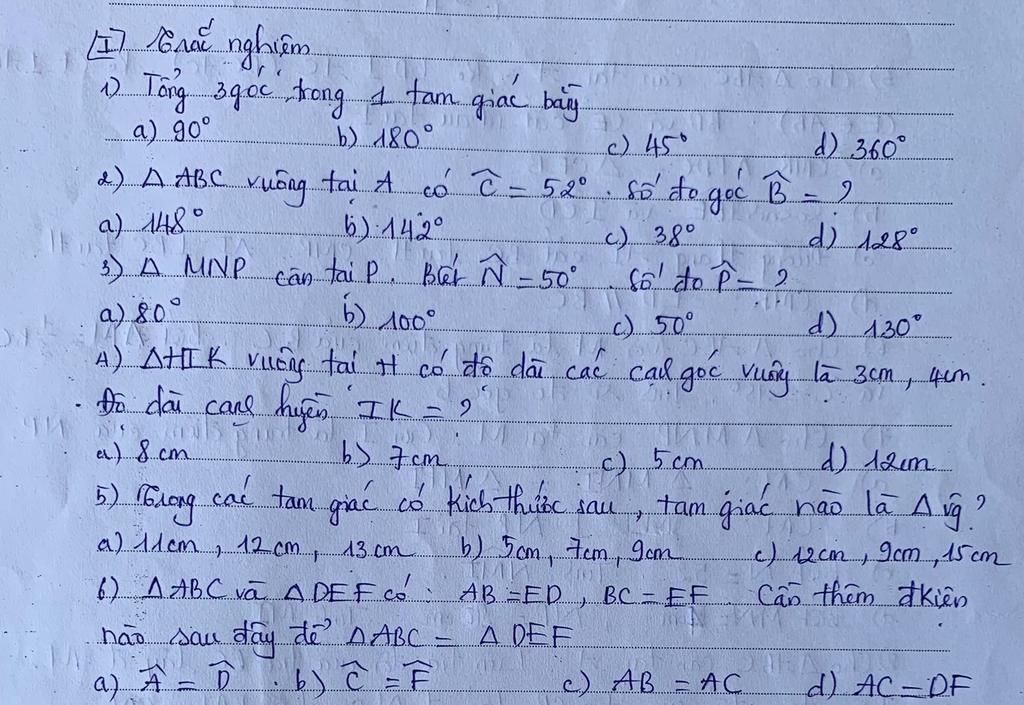 I Trắc nghiệm
1) Tổng 3 góc trong 1 tam giác bằng
a) 90° b) 180° c) 45° d) 360°
2) Δ ABC vuông tại A có Ĉ = 52°. Số đo góc B̂ = ?
a) 148° b) 142° c) 38° d) 128°
3) Δ MNP cân tại P. Biết N̂ = 50°. Số đo P̂ = ?
a) 80° b) 100° c) 50° d) 130°
4) ΔHIK vuông tại H có độ dài các cạnh góc vuông là 3cm, 4cm.
Độ dài cạnh huyền IK = ?
a) 8 cm b) 7cm c) 5 cm d) 12cm
5) Trong các tam giác có kích thước sau, tam giác nào là Δ vg?
a) 11cm, 12 cm, 13 cm b) 5cm, 7cm, 9cm c) 12cm, 9cm, 15cm
6) Δ ABC và Δ DEF có: AB = ED, BC = EF Cần thêm đkiện
nào sau đây để Δ ABC = Δ DEF
a) Â = D̂ b) Ĉ = F̂ c) AB = AC d) AC = DF